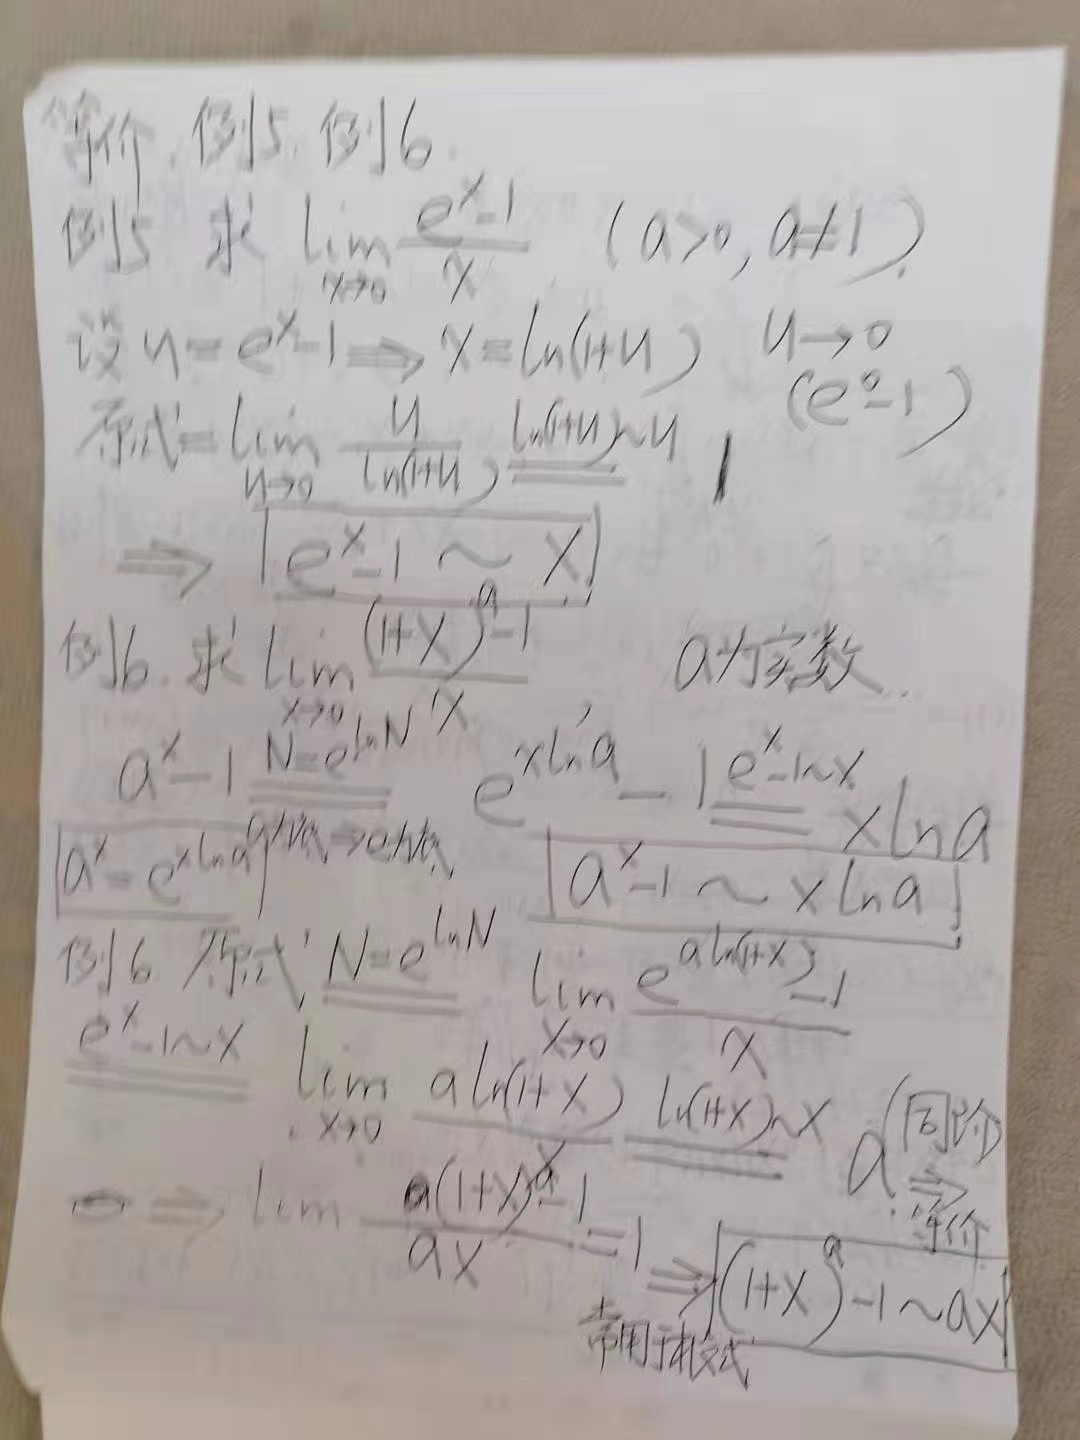 等价.例5.例6.
例5 求 lim x→0 (e^x-1)/x (a>0, a≠1).
设 u=e^x-1 ⇒ x=ln(1+u) u→0
(e^0-1)
原式= lim u→0 u/ln(1+u) ln(1+u)~u 1
⇒ e^x-1 ~ x
例6. 求 lim x→0 ((1+x)^a-1)/x a为实数.
a^x-1 N=e^lnN e^(xlna)-1 e^x-1~x xlna
a^x=e^(xlna) a^x-1 ~ xlna
例6 原式 N=e^lnN lim x→0 (e^(aln(1+x))-1)/x
e^x-1~x lim x→0 aln(1+x)/x ln(1+x)~x a (同阶
⇒
等价
⇒ lim (a(1+x)^a-1)/ax =1 ⇒ (1+x)^a-1~ax
常用于根式